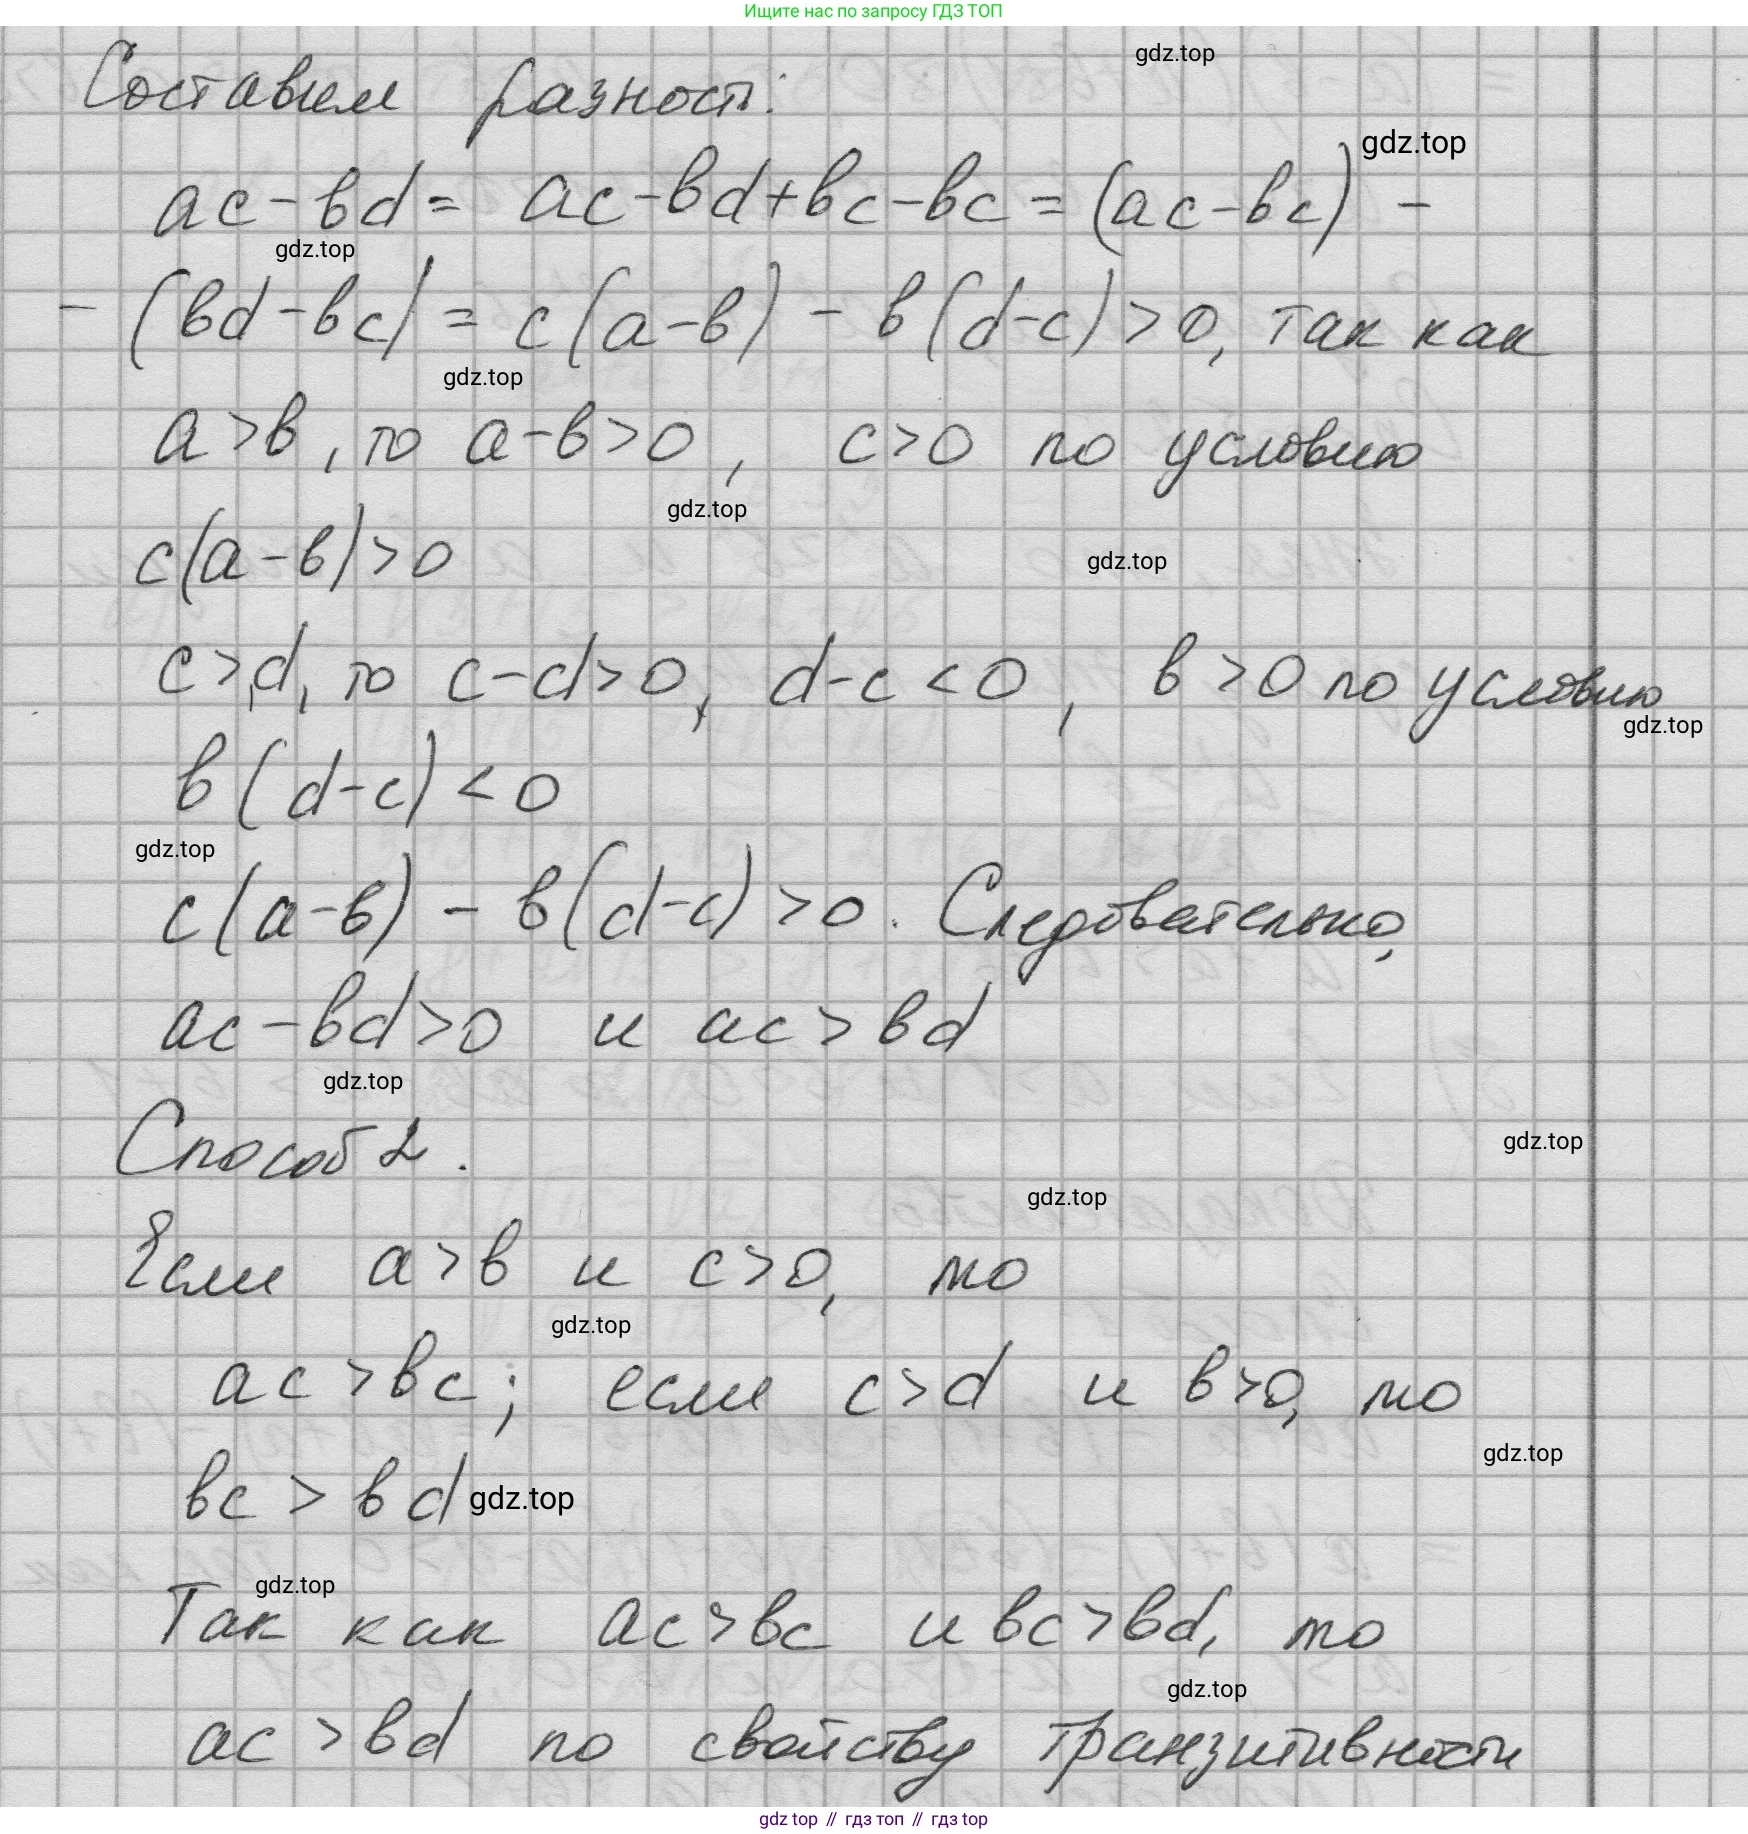 Ищите нас по запросу ГДЗ ТОП
gdz.top
Составим разность:
gdz.top
ac-bd= ac-bd+bc-bc=(ac-bc) -
gdz.top
- (bd-bc)=c(a-b) - b(d-c)>0, так как
gdz.top
a>b, то a-b>0, c>0 по условию
gdz.top
c(a-b)>0
gdz.top
c>d, то c-d>0, d-c<0, b>0 по условию
gdz.top
b(d-c)<0
gdz.top
c(a-b) - b(d-c)>0. Следовательно,
ac-bd>0 и ac>bd
gdz.top
Способ 2.
gdz.top
gdz.top
Если a>b и c>0, то
gdz.top
ac>bc; если c>d и b>0, то
gdz.top
bc>bd
gdz.top
gdz.top
Так как ac>bc и bc>bd, то
gdz.top
ac>bd по свойству транзитивности
gdz top // гдз топ // гдз top